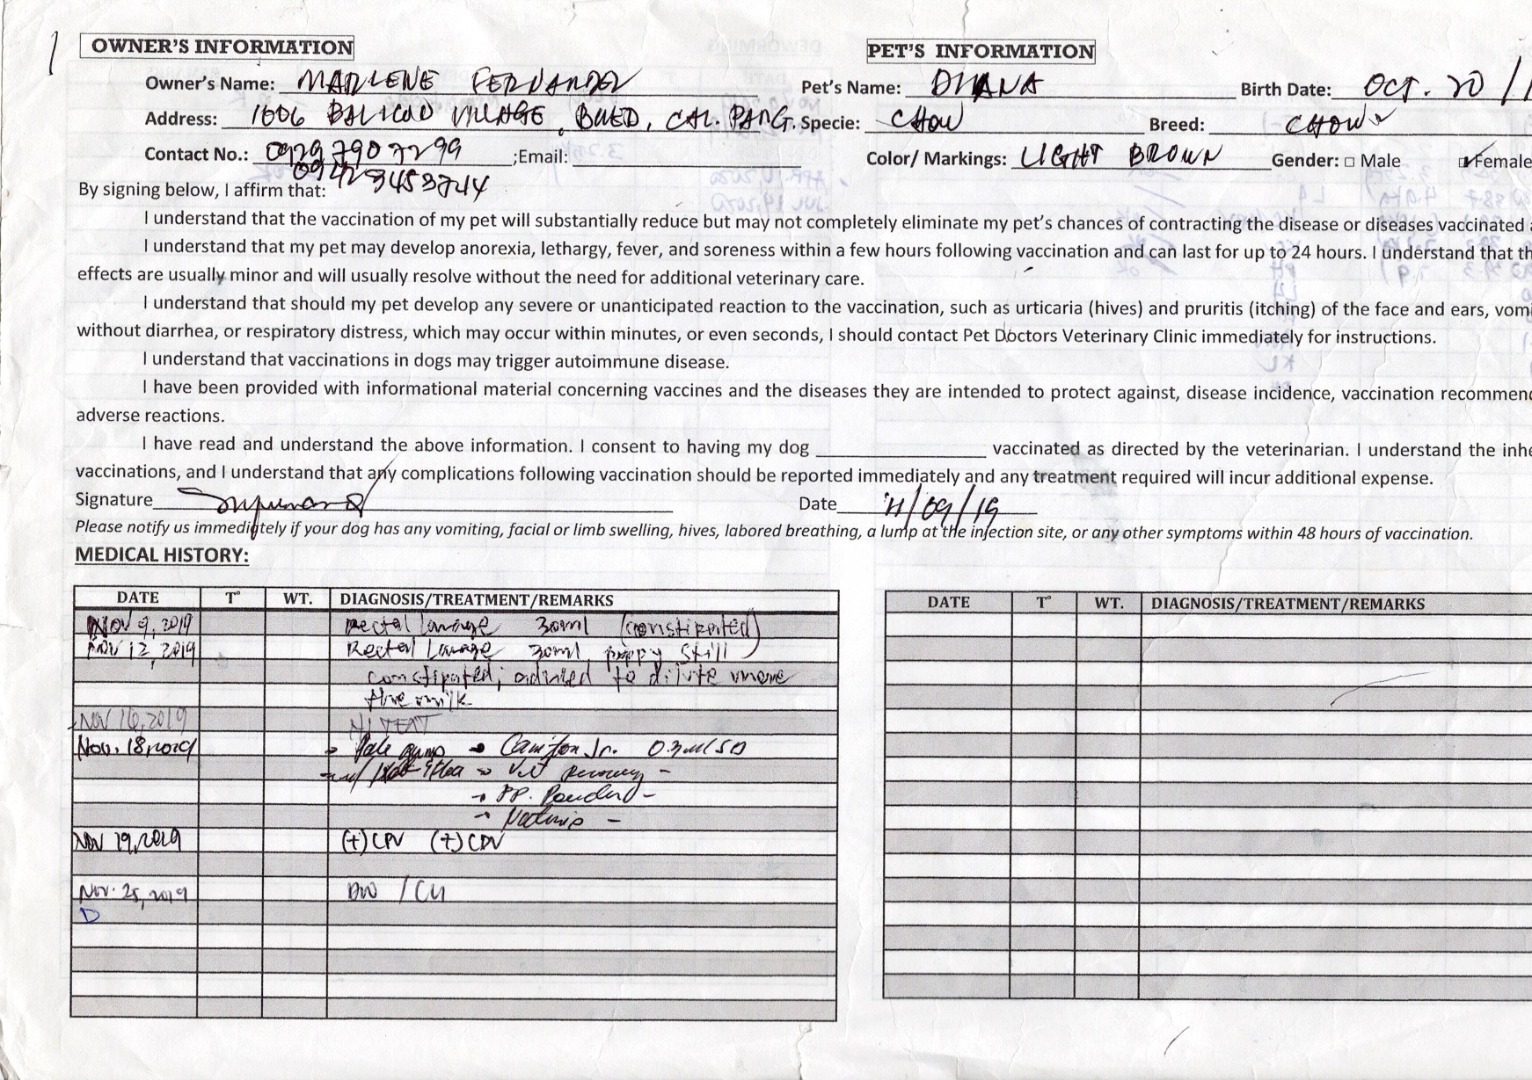 OWNER'S INFORMATION
PET'S INFORMATION
Owner's Name: MARLENE FERNANDEZ Pet's Name: DIANA Birth Date: OCT. 20 / 1
Address: 1606 VILLAGE, BUED, CAL. PANG. Specie: CHOW Breed: CHOW
Contact No.: 0929 790 7299 ;Email: Color/ Markings: LIGHT BROWN Gender: □ Male □ Female
By signing below, I affirm that: 09423453744
I understand that the vaccination of my pet will substantially reduce but may not completely eliminate my pet's chances of contracting the disease or diseases vaccinated
I understand that my pet may develop anorexia, lethargy, fever, and soreness within a few hours following vaccination and can last for up to 24 hours. I understand that th
effects are usually minor and will usually resolve without the need for additional veterinary care.
I understand that should my pet develop any severe or unanticipated reaction to the vaccination, such as urticaria (hives) and pruritis (itching) of the face and ears, vom
without diarrhea, or respiratory distress, which may occur within minutes, or even seconds, I should contact Pet Doctors Veterinary Clinic immediately for instructions.
I understand that vaccinations in dogs may trigger autoimmune disease.
I have been provided with informational material concerning vaccines and the diseases they are intended to protect against, disease incidence, vaccination recommen
adverse reactions.
I have read and understand the above information. I consent to having my dog ________ vaccinated as directed by the veterinarian. I understand the inhe
vaccinations, and I understand that any complications following vaccination should be reported immediately and any treatment required will incur additional expense.
Signature Date 11/09/19
Please notify us immediately if your dog has any vomiting, facial or limb swelling, hives, labored breathing, a lump at the injection site, or any other symptoms within 48 hours of vaccination.
MEDICAL HISTORY:
DATE T° WT. DIAGNOSIS/TREATMENT/REMARKS
DATE T° WT. DIAGNOSIS/TREATMENT/REMARKS
NOV 9, 2019 Rectal lavage 30ml (constipated)
NOV 12, 2019 Rectal lavage 30ml, puppy still
constipated; advised to dilute more
the milk
NOV 16, 2019
Nov. 18, 2019 → Pale gums → Jr. 0.3ml SQ
→ Vet Recovery -
→ PP. -
NOV 19, 2019 (+) CPV (+) CDV
Nov. 25, 2019 DW / CU
D